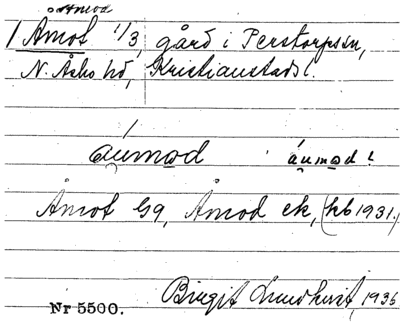 Åmod
1 Åmot 1/3, gård i Perstorps sn,
N. Åsbo hd, Kristianstads l.
áu̯mod áu̯mod!
Åmot G9, Åmod ek, (hb 1931.)
Birgit Lundkvist, 1936
Nr 5500.